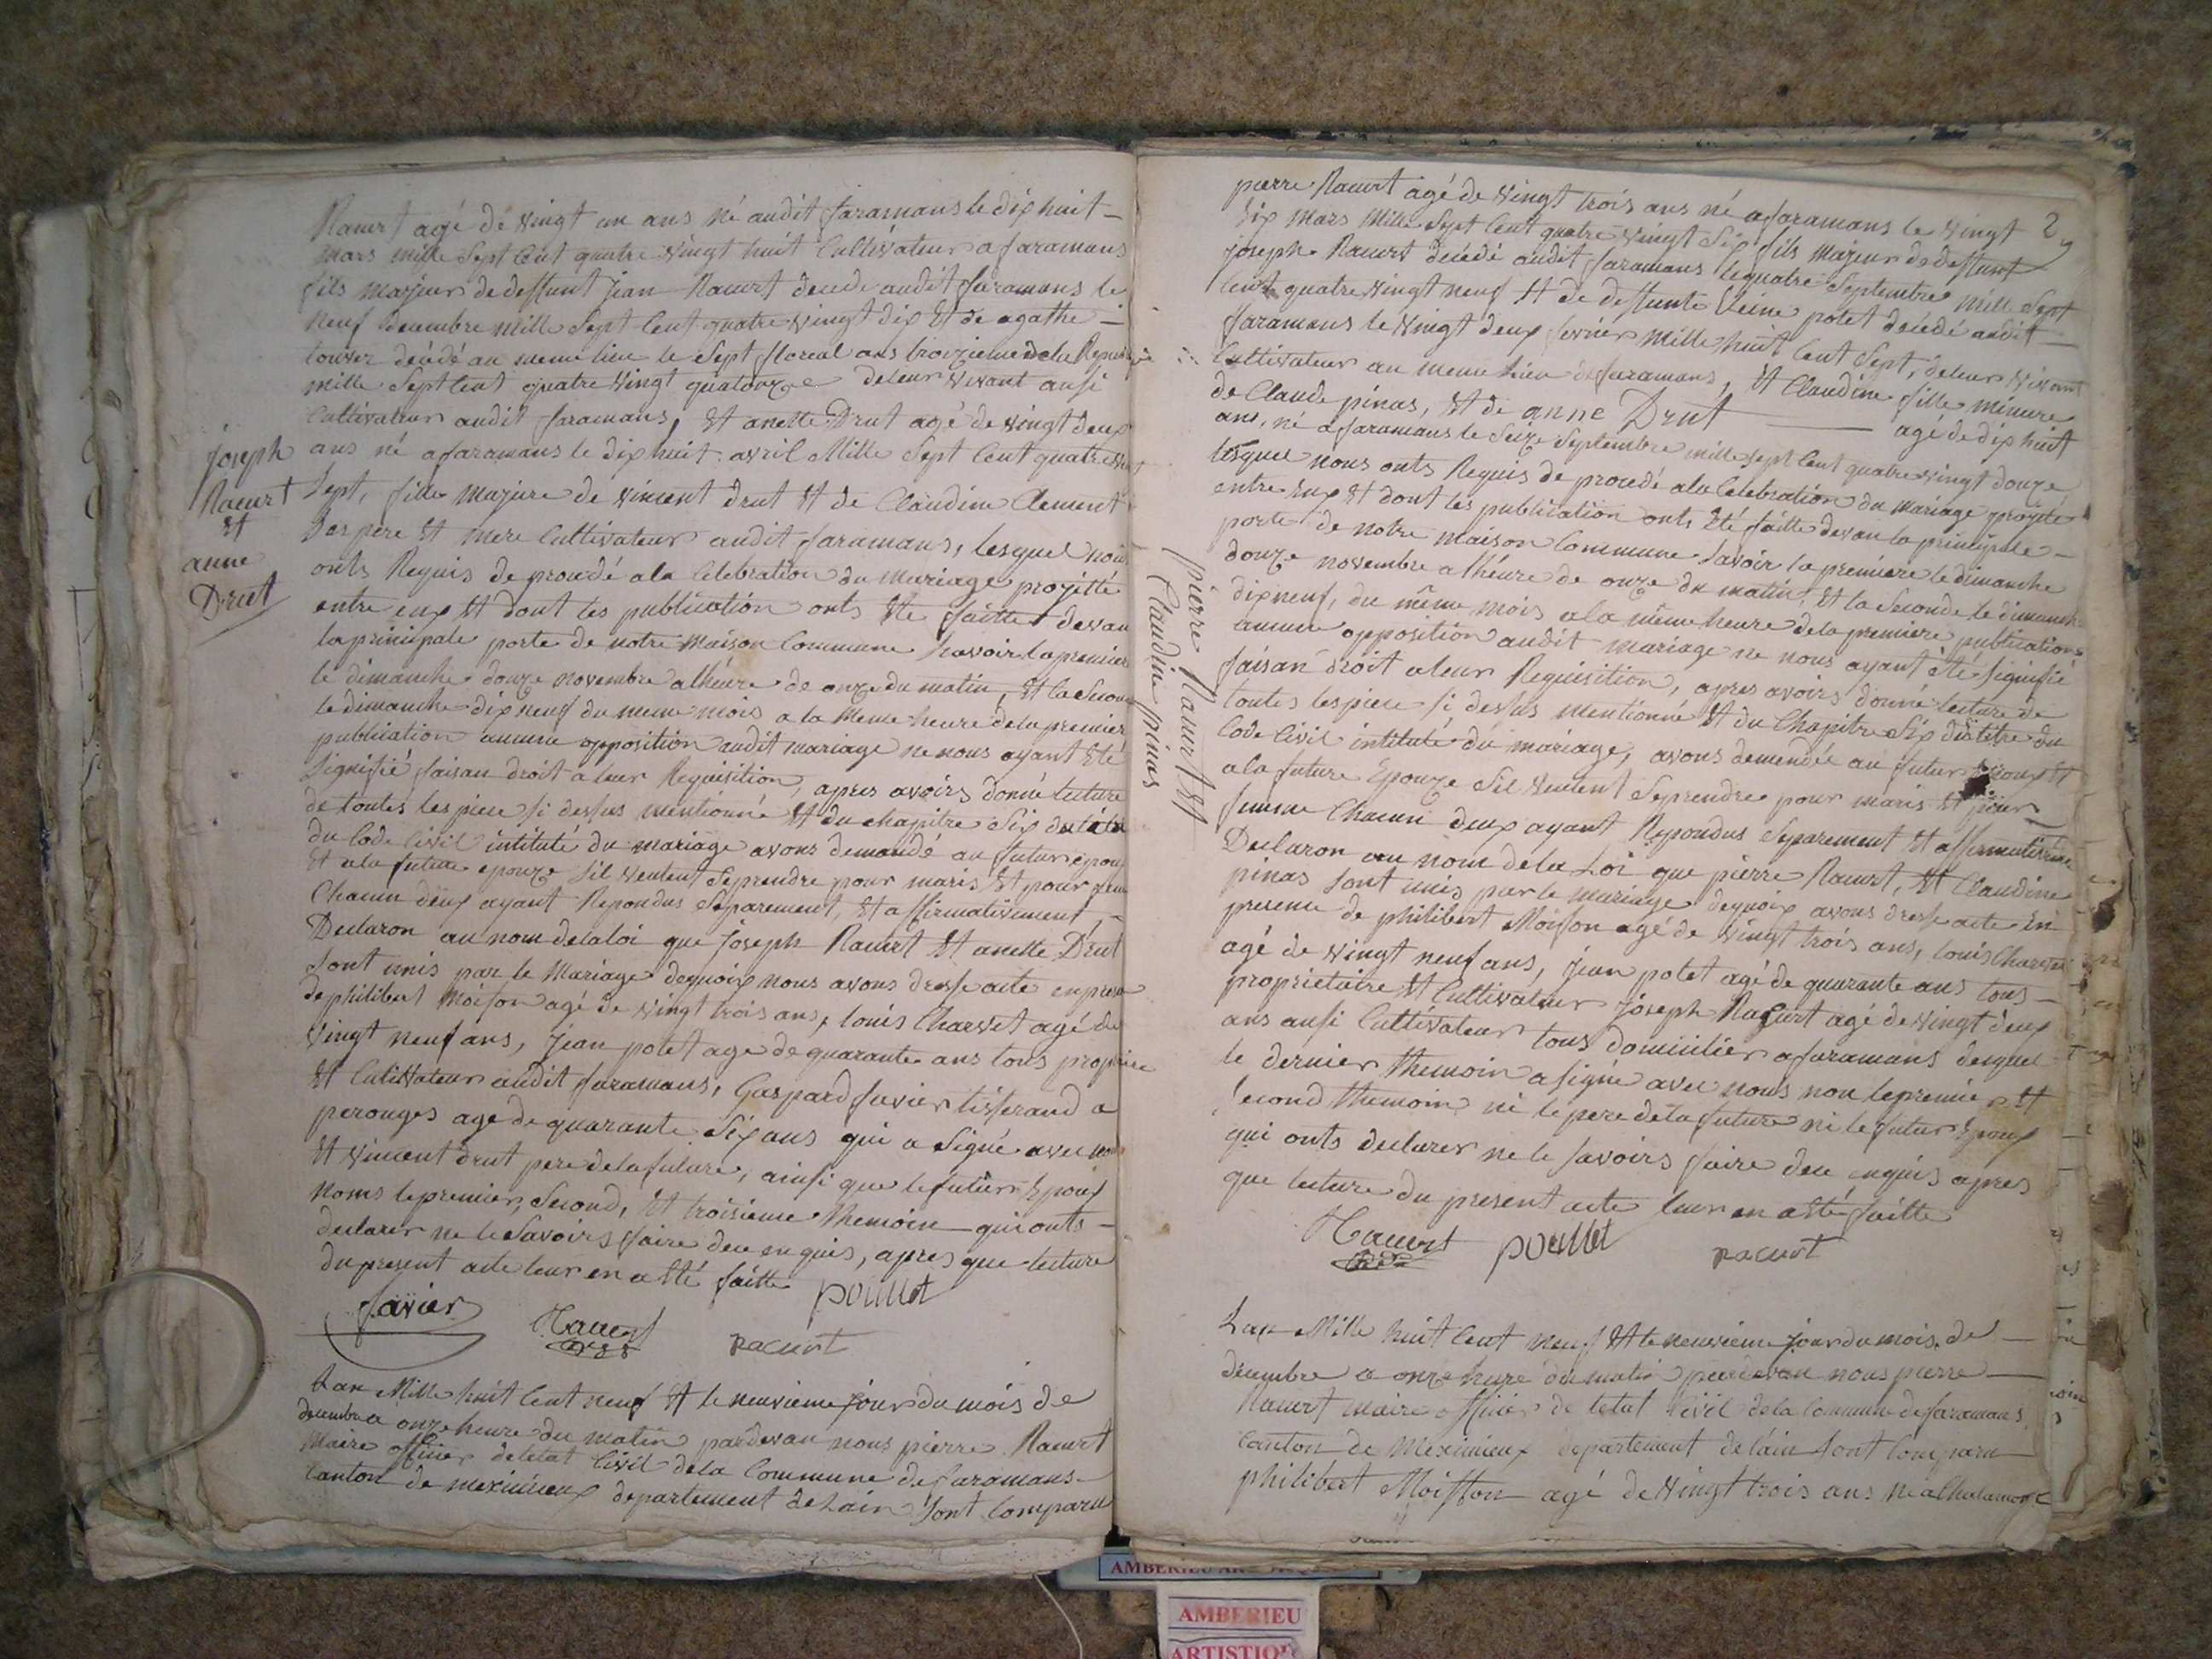 Racurt agé de vingt un ans né audit faramans le dix huit
mars mille Sept Cent quatre vingt huit Cultivateur a faramans
fils majeur de deffunt jean Racurt decede audit faramans le
neuf decembre mille Sept Cent quatre vingt dix Et de agathe
decédé au meme lieu le Sept floreal ans troizieme de la
mille Sept Cent quatre vingt quatorze de leur vivant ausi
Cultivateur audit faramans, Et anette Drut agé de vingt deux
ans né a faramans le dix huit avril Mille Sept Cent quatre
Sept, fille majure de vincent drut Et de Claudine Clement
Ses pere Et mere Cultivateur audit faramans, lesquel nous
onts Requis de procedé a la Celebration du mariage projetté
entre eux Et dont les publication onts Eté faitte devan
la principale porte de notre maison Commune Savoir la premier
le dimanche douze novembre a lhéure de onze du matin, Et la Secon
le dimanche dix neuf du meme mois a la meme heure de la premier
publication aucune opposition audit mariage ne nous ayant Eté
Signifié faisan droit a leur Requisition, apres avoirs donné lecture
de toutes les piece si desus mentionné Et du chapitre Six du
du Code Civil intitulé du mariage avons demandé au futur epoux
Et a la future epouze s'il veulent Se prendre pour maris Et pour
Chacun deux ayant Repondus Separement, Et affirmativement,
Declaron au nom de la loi que joseph Racurt Et anette Drut
Sont unis par le Mariage dequoix nous avons dressé acte en
de philibert moison agé de vingt trois ans, louis Charvet agé de
vingt neuf ans, jean potet agé de quarante ans tous
Et Cultivateur audit faramans, Gaspard favier tisserand a
perouges agé de quarante Six ans qui a Signé avec nous
Et vincent drut pere de la future, ainsi que le futur Epoux
nons le premier, Second, Et troisieme themoin qui onts
declarer ne le Savoirs faire deu enquis, apres que lecture
du present acte leur en a Eté faitte
pouillet
favier
Racurt
racurt
joseph
Racurt
Et
anne
Drut
Lan Mille huit Cent neuf Et le neuvieme jour du mois de
decembre a onze heure du matin pardevan nous pierre Racurt
Maire officier de letat Civil de la Commune de faramans
Canton de meximieux departement de Lain Sont Comparu
2
pierre Racurt agé de vingt trois ans né a faramans le vingt
Six mars Mille Sept Cent quatre vingt Six fils majeur de deffunt
joseph Racurt decédé audit faramans le quatre Septembre mille Sept
Cent quatre vingt neuf Et de deffunte potet decédé audit
faramans le vingt deux fevrier mille huit Cent Sept, de leur vivant
Cultivateur au meme Lieu de faramans, Et Claudine fille mineure
de Claude pinas, Et de anne Drut agé de dix huit
ans, né a faramans le Seize Septembre mille Sept Cent quatre vingt douze
lesquel nous onts Requis de procedé a la Celebration du mariage projeté
entre Eux Et dont les publication onts Eté faitte devan la principale
porte de notre maison Commune Savoir la premiere le dimanche
douze novembre a lhéure de onze du matin, Et la Seconde le dimanche
dix neuf, du même mois a la même heure de la premiere publication
aucune opposition audit mariage ne nous ayant été Signifié
faisan droit a leur Requisition, apres avoirs donné lecture de
toutes les piece si desus mentionné Et du Chapitre Six du titre du
Code Civil intitulé du mariage, avons demendée au futur Epoux Et
a la future Epouze Sil veulent Se prendre pour maris Et pour
femme Chacun deux ayant Repondus Separement Et affirmativement
Declaron au nom de la Loi que pierre Racurt, Et Claudine
pinas Sont unis par le mariage dequoix avons dressé acte En
presence de philibert Moison agé de vingt trois ans, louis Charvet
agé de vingt neuf ans, jean potet agé de quarante ans tous
proprietaire Et Cultivateur joseph Racurt agé de vingt deux
ans ausi Cultivateur tous domicilier a faramans desquel
le dernier themoin a signé avec nous non le premier Et
Second themoin ni le pere de la future ni le futur Epoux
qui onts declarer ne le Savoirs faire deu enquis apres
que lecture du present acte leur en a Eté faitte
Racurt pouillet racurt
pierre Racurt Et
Claudine pinas
Lan Mille huit Cent neuf Et le neuvieme jour du mois de
decembre a onze heure du matin pardevan nous pierre
Racurt maire officier de letat Civil de la Commune de faramans
Canton de meximieux departement de lain Sont Comparu
philibert Moisson agé de vingt trois ans né a Chalamont
AMBERIEU
AMBERIEU
ARTISTIQUE